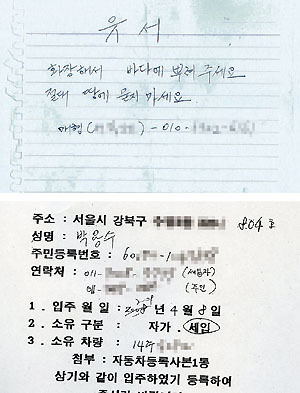 유서
화장해서 바다에 뿌려 주세요
절대 땅에 묻지 마세요.
매형 ( ) - 010 -
주소 : 서울시 강북구 804호
성명 : 박용수
주민등록번호 : 60 - 1
연락처 : 011 - (세입자)
(주인)
1. 입주 월 일 : 년 4월 8일
2. 소유 구분 : 자가. 세입
3. 소유 차량 : 14
첨부 : 자동차등록사본1통
상기와 같이 입주하였기 등록하여